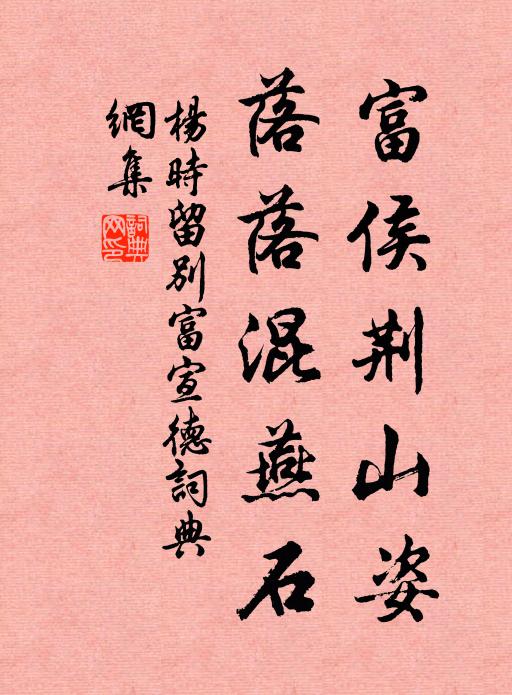 富侯荆山姿
落落混燕石
楊時留別富宣德詞典
網集
詞典
网印